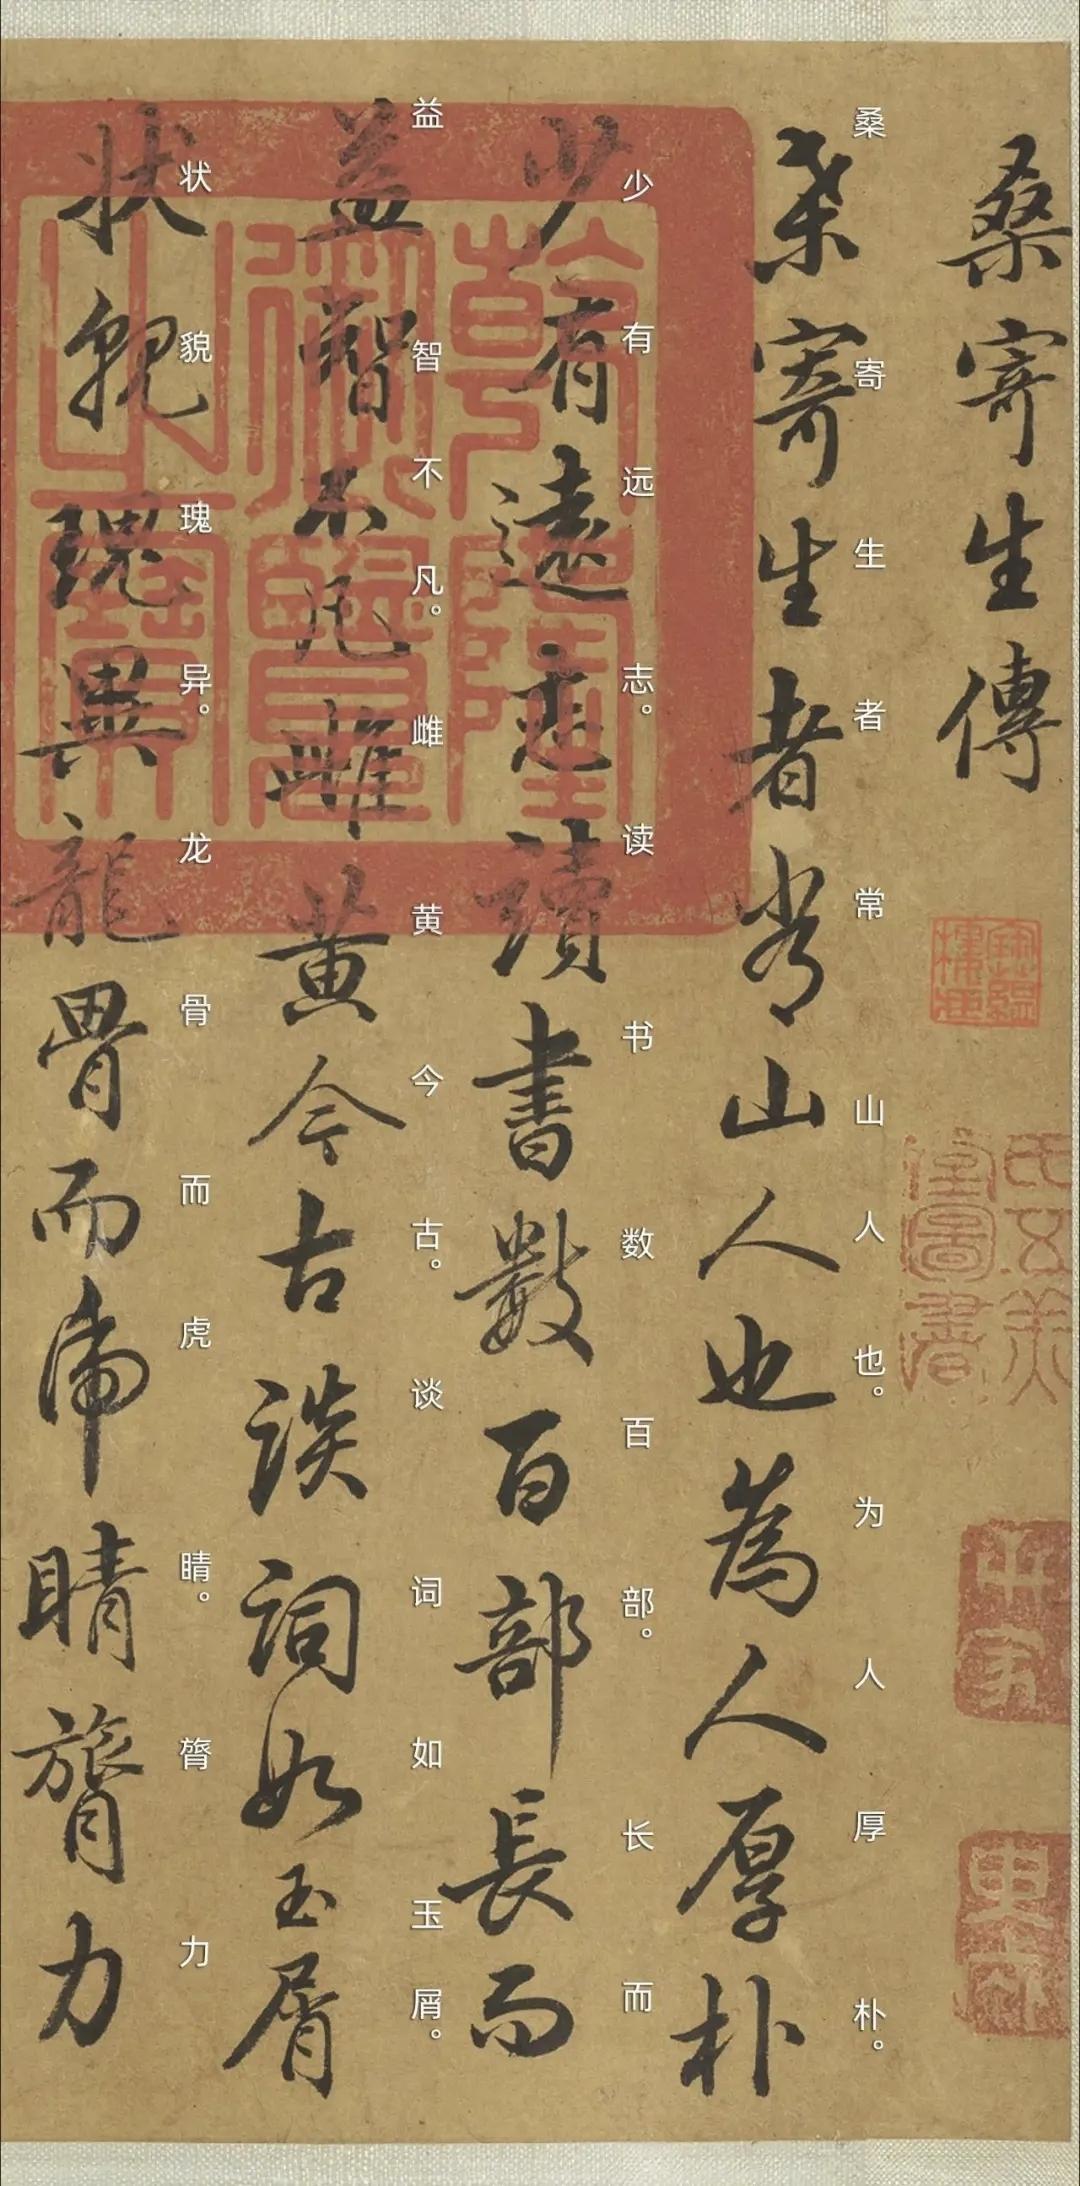 桑寄生傳
桒寄生者常山人也為人厚朴
桑寄生者常山人也。为人厚朴。
少有遠志讀書數百部長而
少有远志。读书数百部。长而
益智不凡雌黄今古談詞如玉屑
益智不凡。雌黄今古。谈词如玉屑。
狀貌瑰異龍骨而虎睛膂力
状貌瑰异。龙骨而虎睛。膂力
乾隆
御覽
之寶